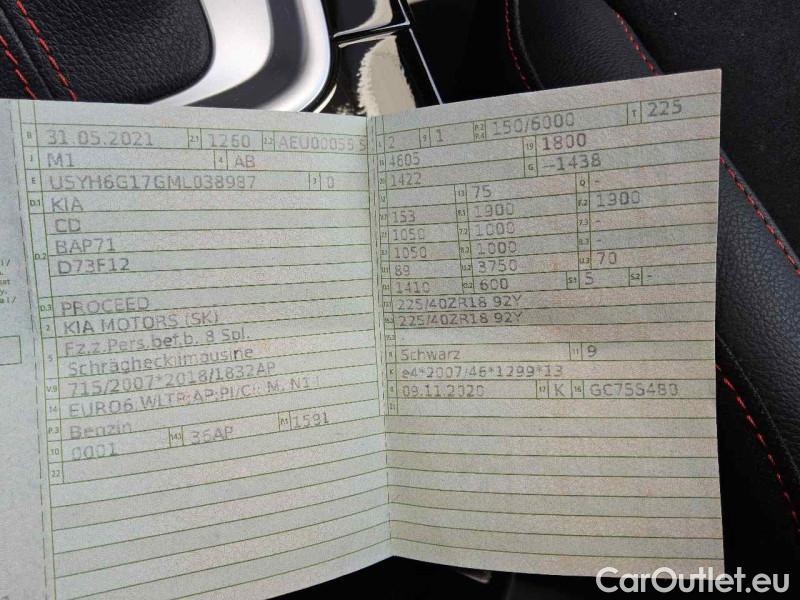 B 31.05.2021 2.1 1260 2.2 AEU00055 5
J M1 4 AB
E U5YH6G17GML038987 3 0
D.1 KIA
CD
D.2 BAP71
D73F12
D.3 PROCEED
2 KIA MOTORS (SK)
5 Fz.z.Pers.bef.b. 8 Spl.
Schräghecklimousine
V.9 715/2007*2018/1832AP
14 EURO6;WLTP;AP;PI/CI; M, N1 I
P.3 Benzin
10 0001 14.1 36AP P.1 1591
22
L 2 9 1 P.2 P.4 150/6000 T 225
18 4605 19 1800
20 1422 G --1438
12 - 13 75 Q -
V.7 153 F.1 1900 F.2 1900
7.1 1050 7.2 1000 7.3 -
8.1 1050 8.2 1000 8.3 -
U.1 89 U.2 3750 U.3 70
O.1 1410 O.2 600 S.1 5 S.2 -
15.1 225/40ZR18 92Y
15.2 225/40ZR18 92Y
R Schwarz 11 9
K e4*2007/46*1299*13
6 09.11.2020 17 K 16 GC755480
21
CarOutlet.eu